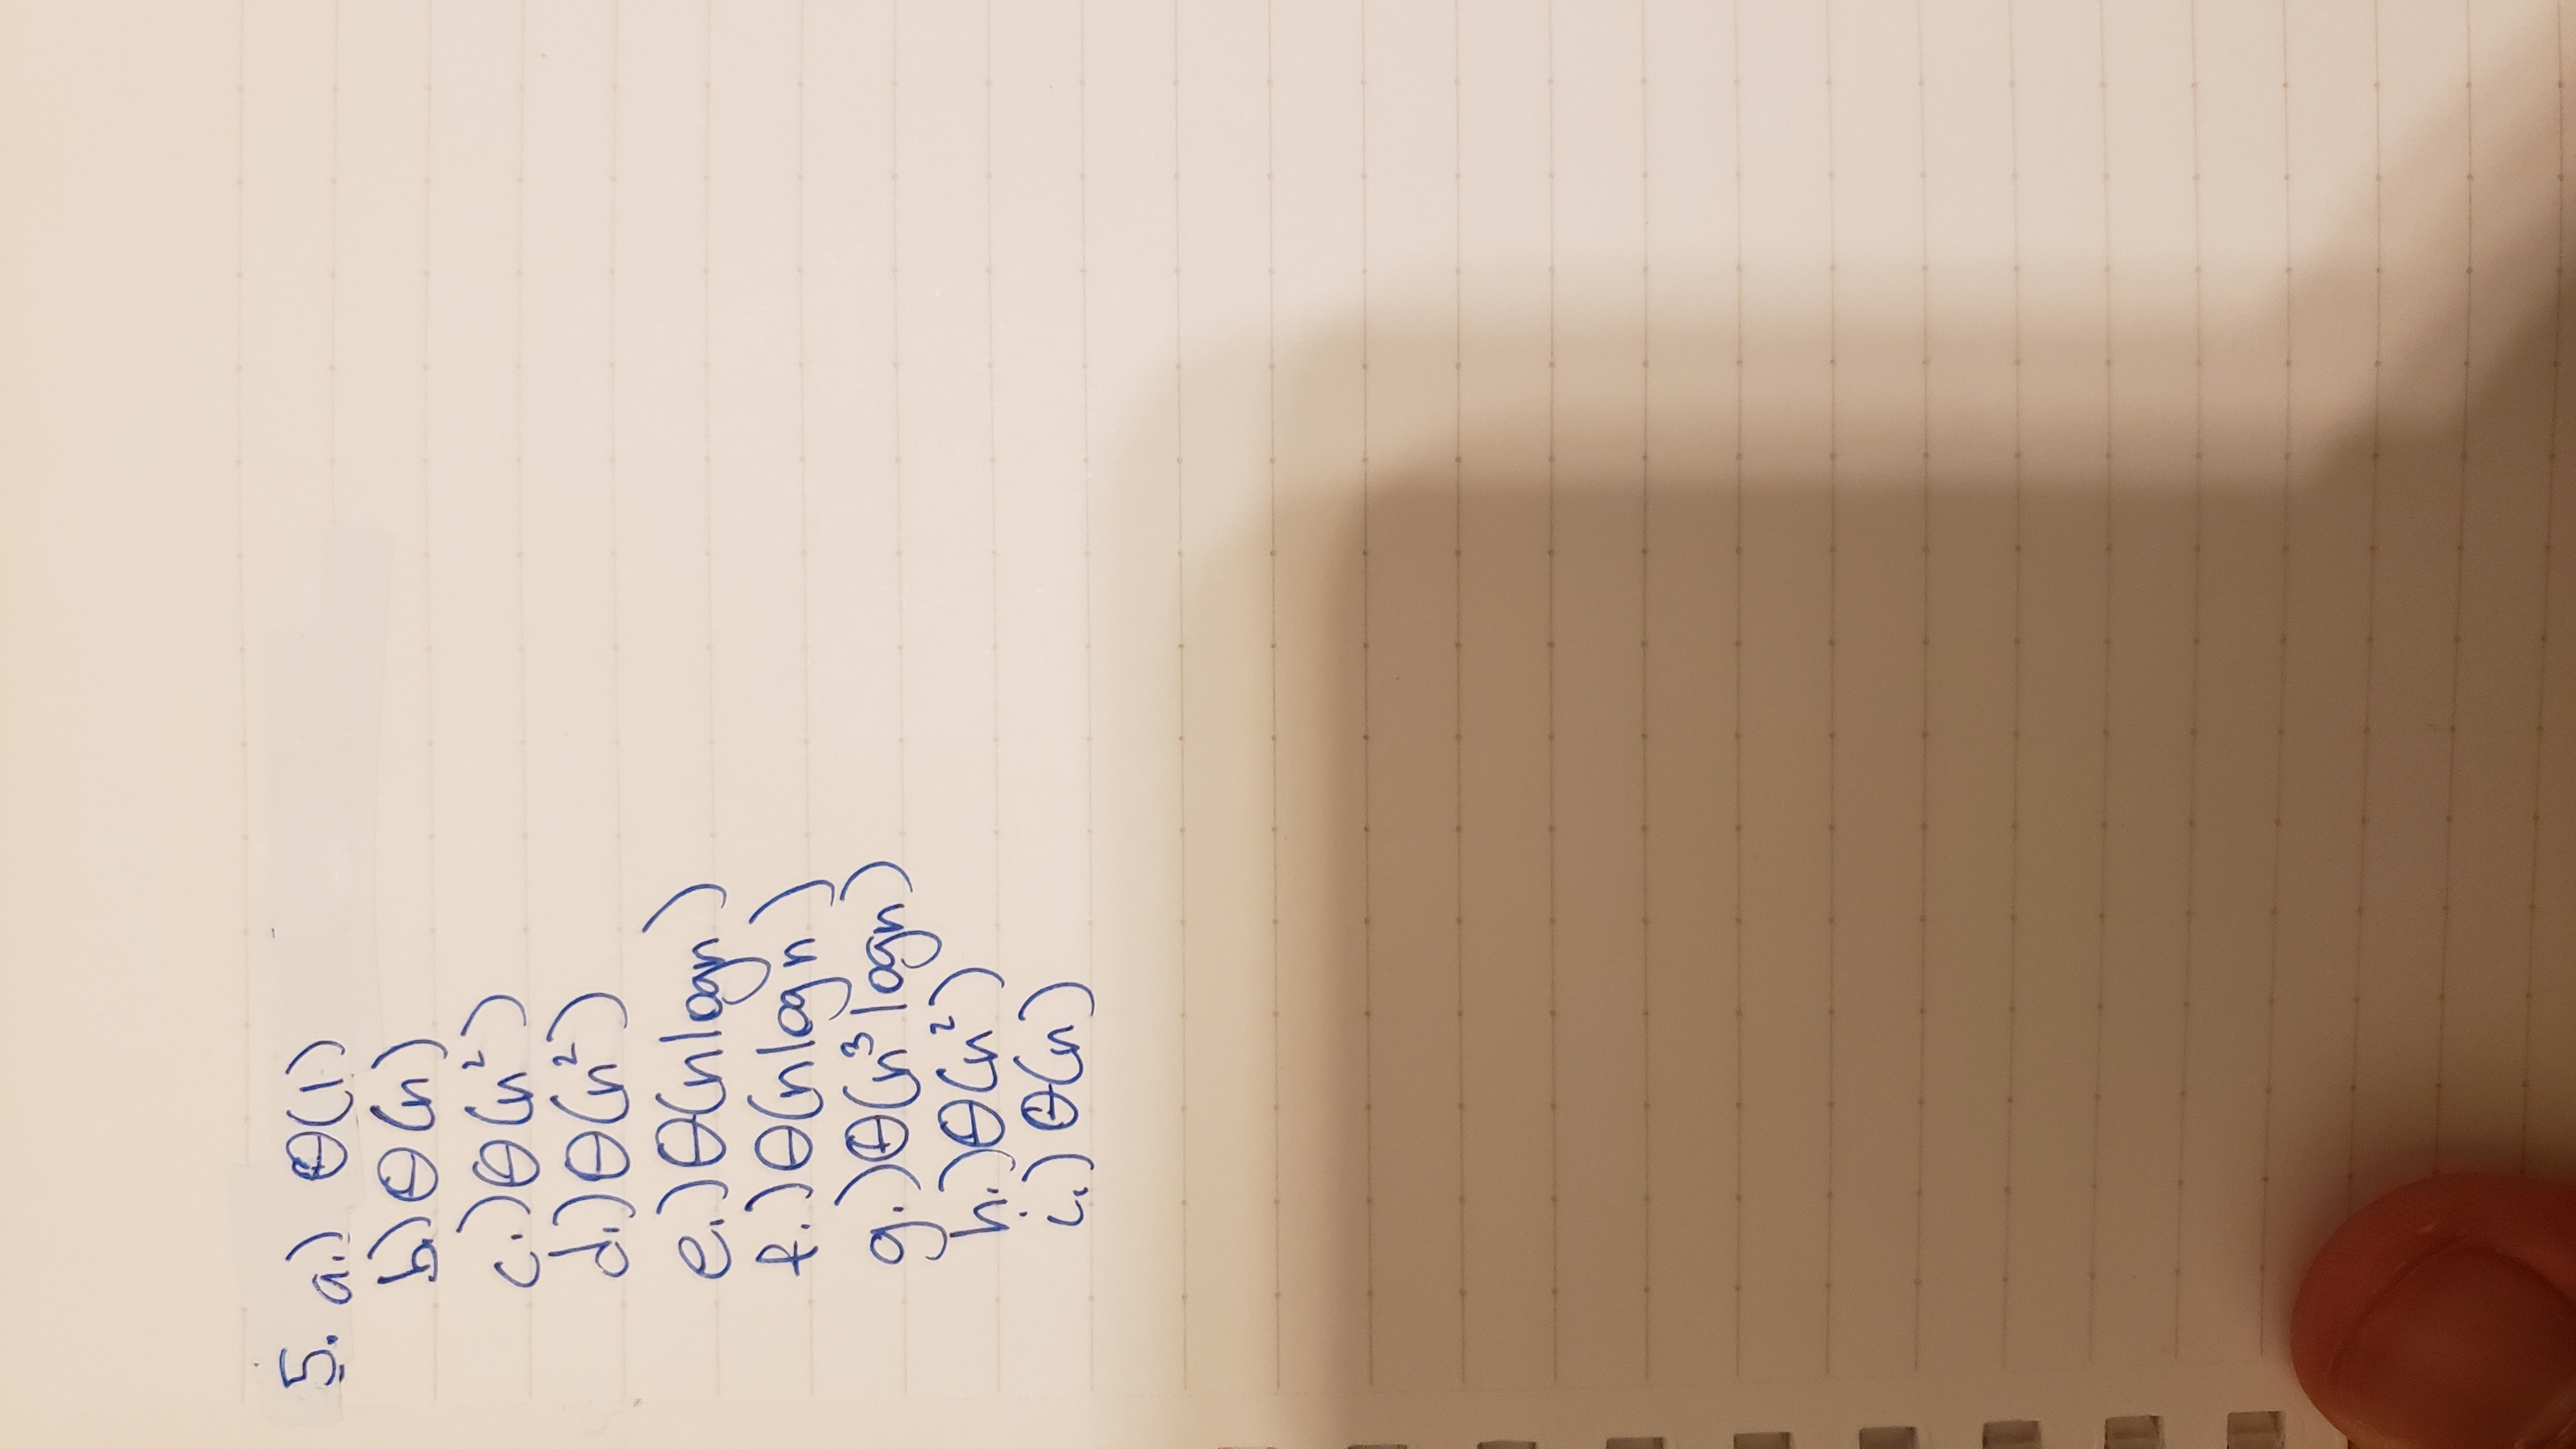 5. a.) Θ(1)
b.) Θ(n)
c.) Θ(n²)
d.) Θ(n²)
e.) Θ(nlogn)
f.) Θ(nlogn)
g.) Θ(n³ logn)
h.) Θ(n²)
i.) Θ(n)